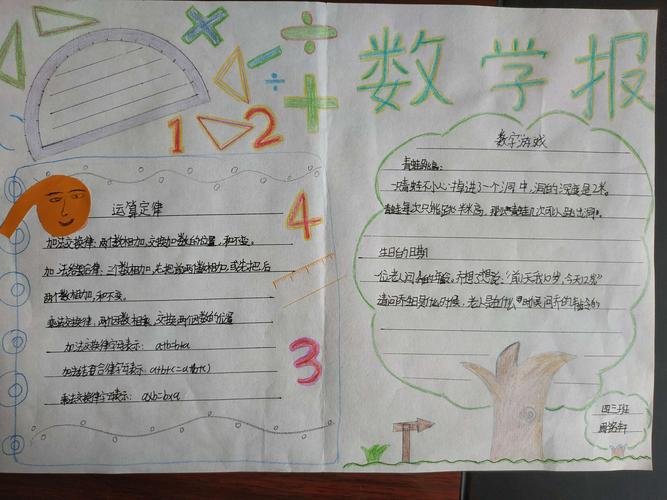 数学报
1
2
4
3
运算定律
加法交换律:两个数相加,交换加数的位置,和不变。
加法结合律:三个数相加,先把前两个数相加,或先把后
两个数相加,和不变。
乘法交换律,两个因数相乘,交换两个因数的位置
加法交换律字母表示:a+b=b+a
加法结合律字母表示:a+b+c=a+(b+c)
乘法交换律字母表示:a×b=b×a
数字游戏
青蛙跳高:
一只青蛙不小心掉进了一个洞中,洞的深度是2米。
青蛙每次只能跳半米高,
生日的日期
位老人问 的年龄。乔想了想说:“前天我10岁,今天12岁”
请问乔生日是什么时候,老人是在什么时候问乔的年龄的?
四三班